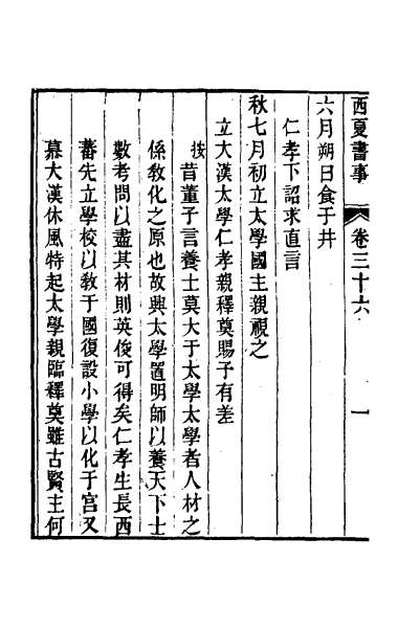 西夏書事 卷三十六 一
六月朔日食于井
仁孝下詔求直言
秋七月初立太學國主親視之
立大漢太學仁孝親釋奠賜予有差
按昔董子言養士莫大于太學太學者人材之
係教化之原也故興太學置明師以養天下士
數考問以盡其材則英俊可得矣仁孝生長西
蕃先立學校以敎于國復設小學以化于宫又
慕大漢休風特起太學親臨釋奠雖古賢主何